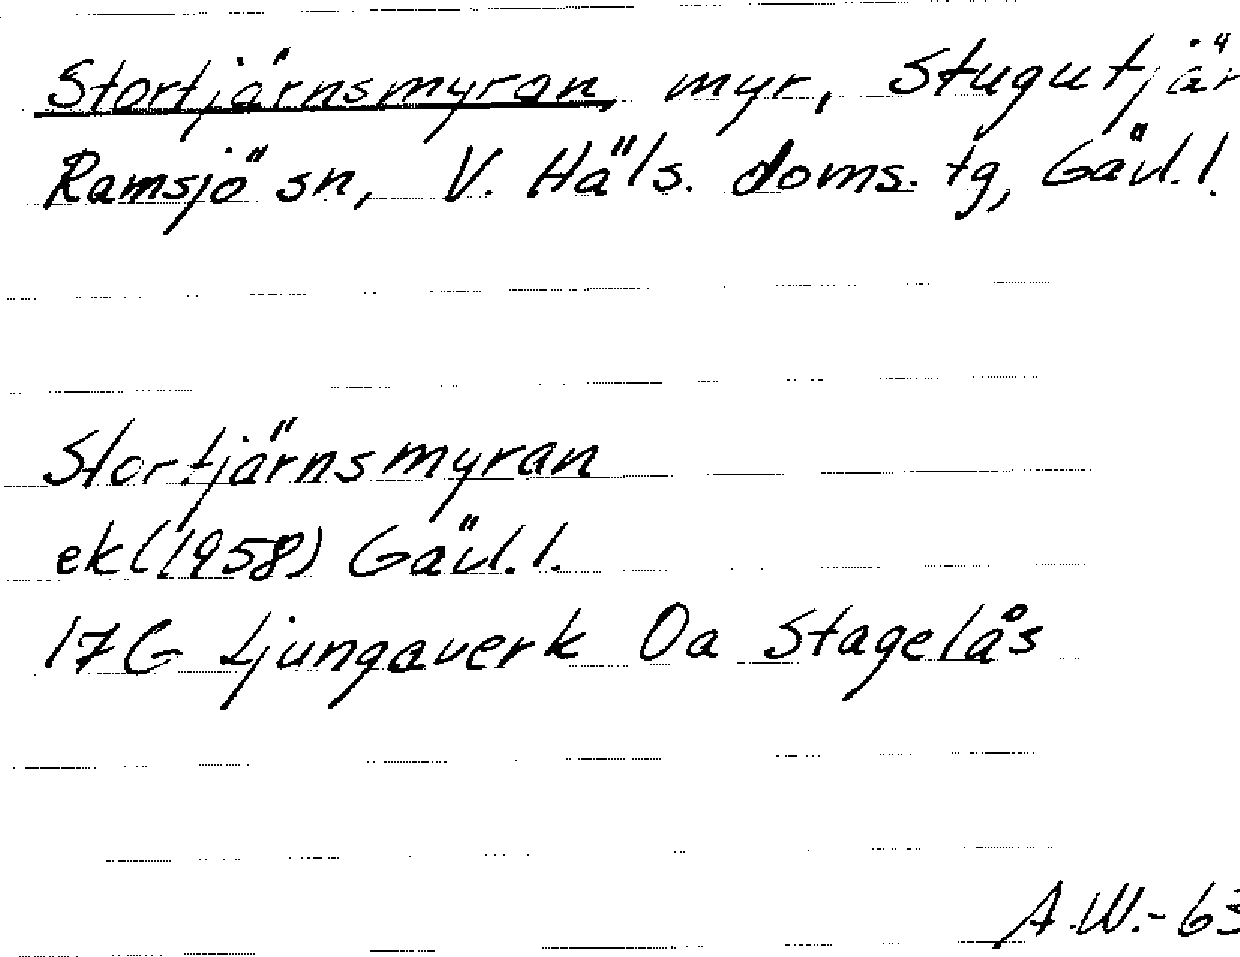 Stortjärnsmyran, myr, Stugutjär
Ramsjö sn, V. Häls. doms. tg, Gävl. l.
Stortjärnsmyran
ek (1958) Gävl. l.
17G Ljungaverk Oa Stagelås
A.W.-63